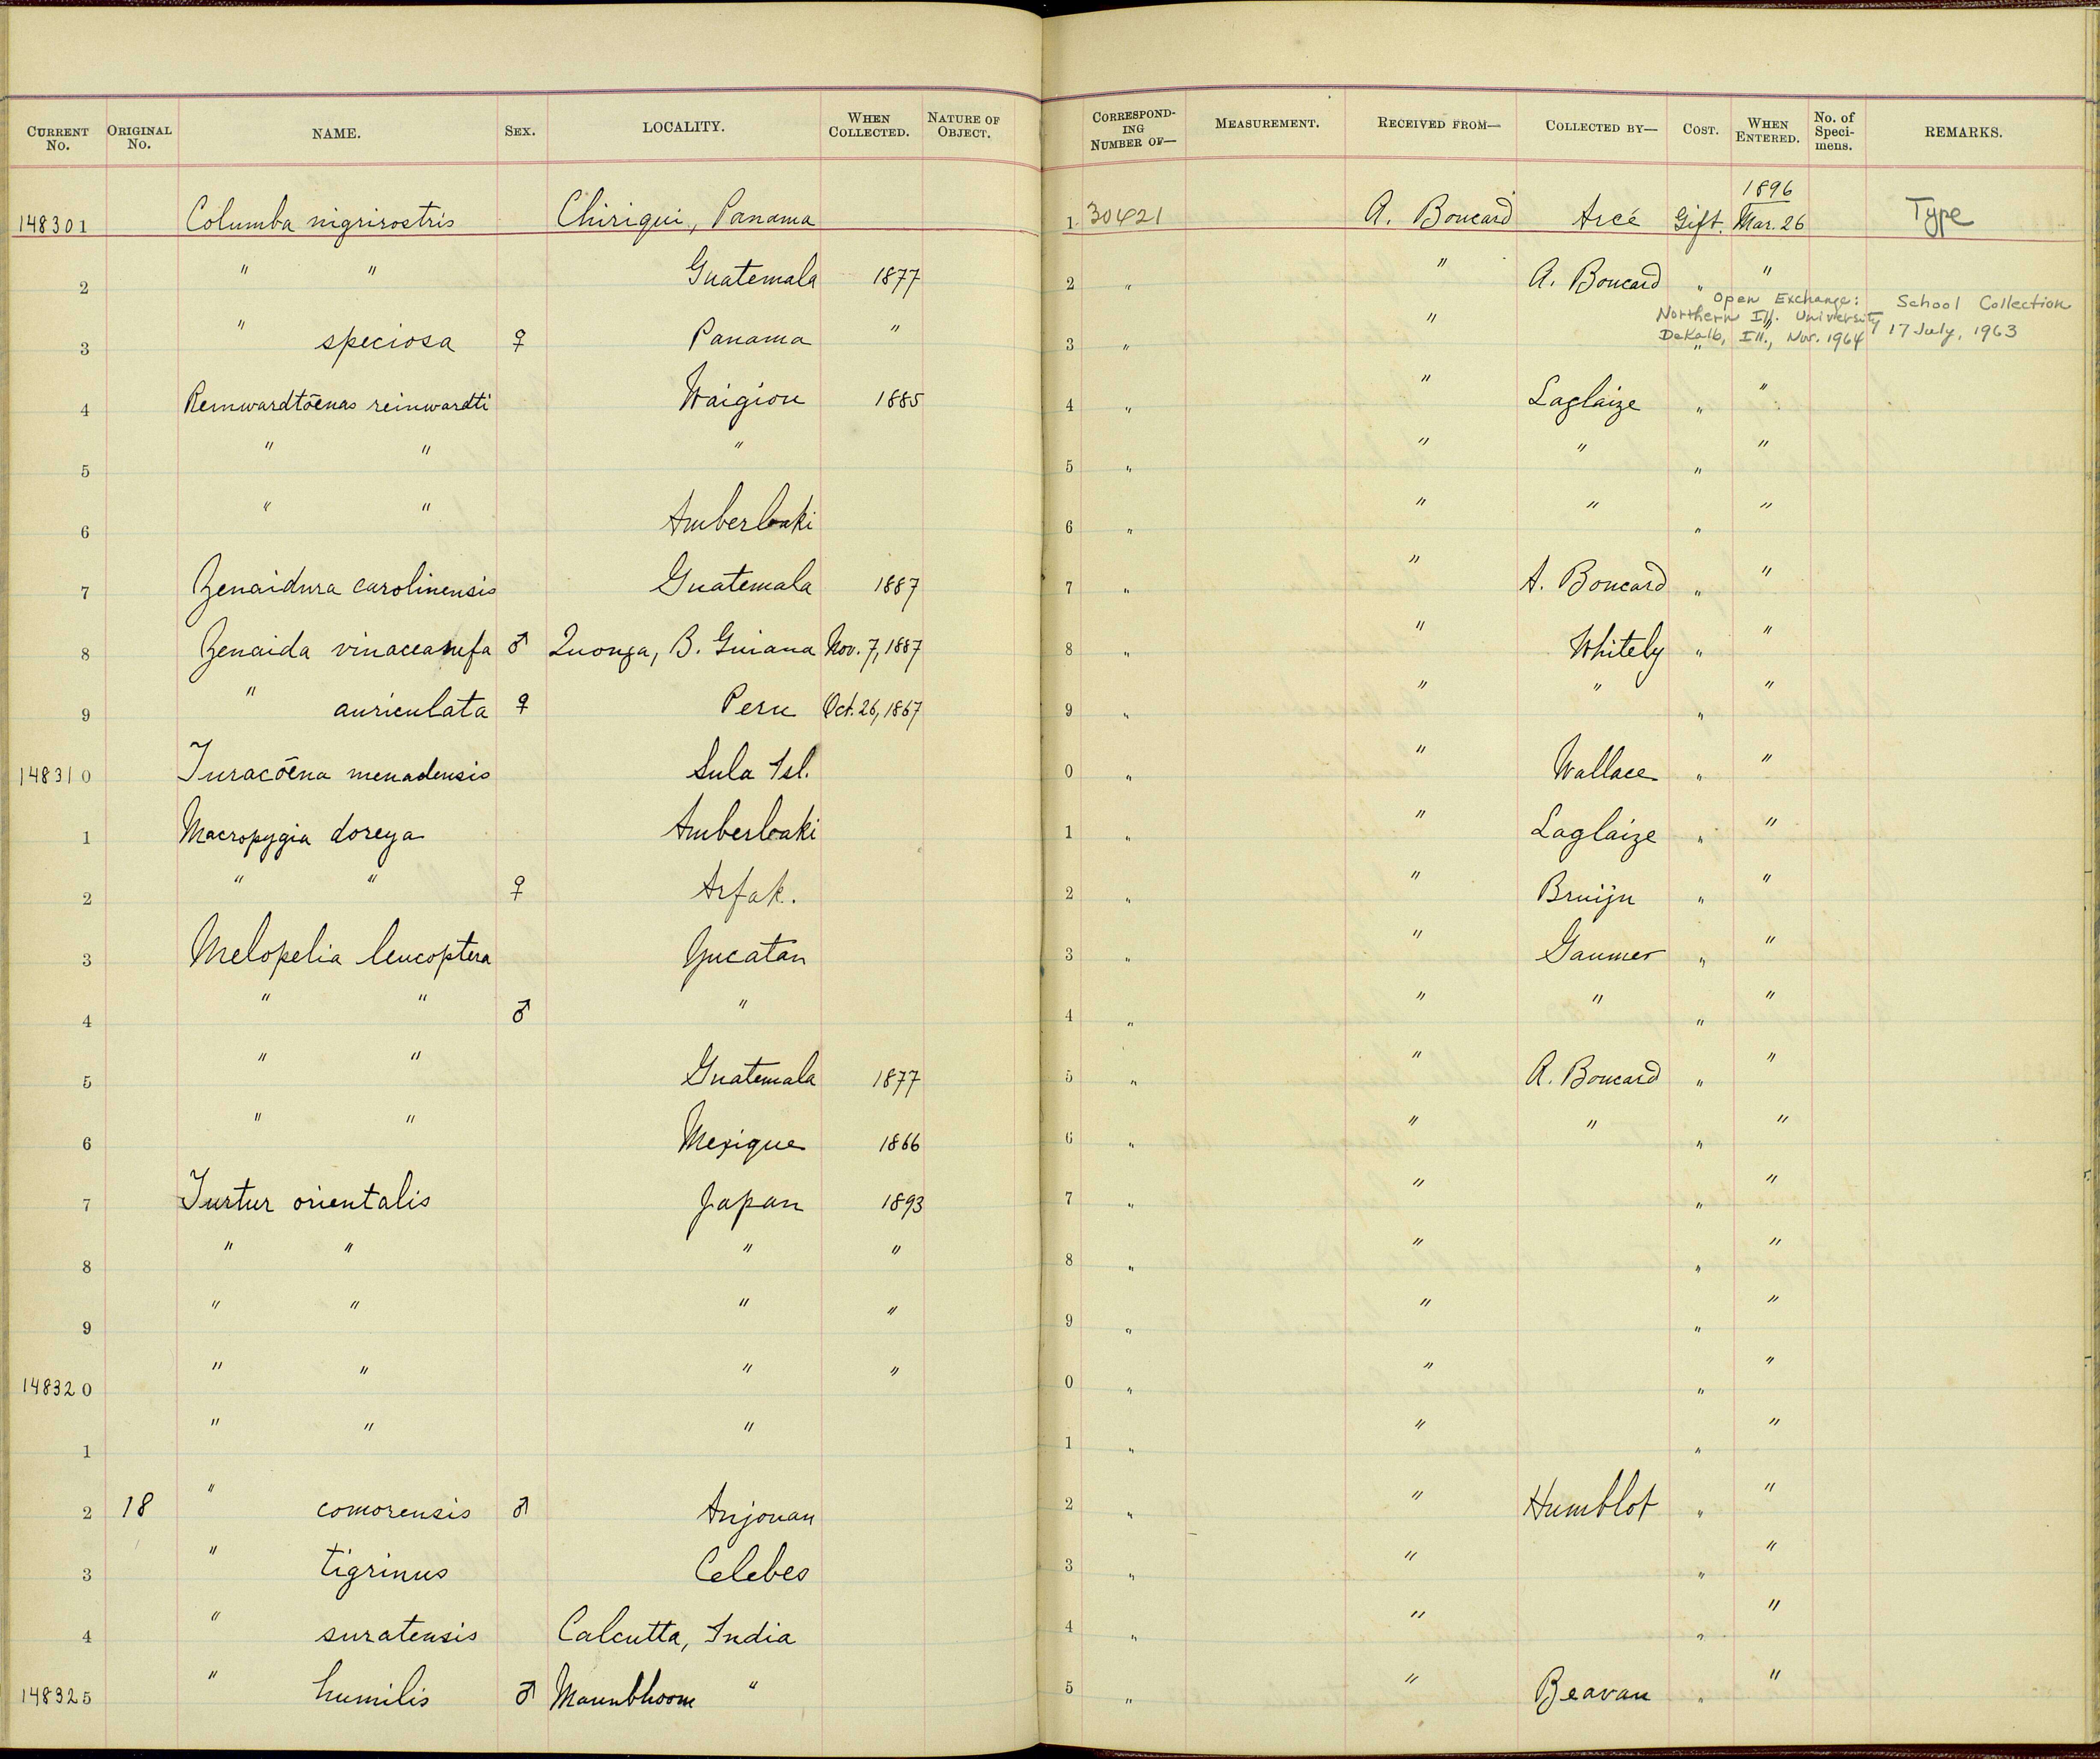 CURRENT No. ORIGINAL No. NAME. SEX. LOCALITY. WHEN COLLECTED. NATURE OF OBJECT. CORRESPONDING NUMBER OF— MEASUREMENT. RECEIVED FROM— COLLECTED BY— COST. WHEN ENTERED. No. of Specimens. REMARKS.
1896
148301 Columba nigrirostris Chiriqui, Panama 1 30421 A. Boucard Arcé Gift. Mar. 26 Type
2 " " Guatemala 1877 2 " " A. Boucard " "
Open Exchange: School Collection
Northern Ill. University 17 July, 1963
DeKalb, Ill., Nov. 1964
3 " speciosa ♀ Panama " 3 " " " "
4 Reinwardtöenas reinwardti Waigiou 1885 4 " " Laglaize " "
5 " " " 5 " " " " "
6 " " Amberbaki 6 " " " " "
7 Zenaidura carolinensis Guatemala 1887 7 " " A. Boucard " "
8 Zenaida vinaceanufa ♂ Quonga, B. Guiana Nov. 7, 1887 8 " " Whitely " "
9 " auriculata ♀ Peru Oct. 26, 1867 9 " " " " "
148310 Turacöena menadensis Sula Isl. 0 " " Wallace " "
1 Macropygia doreya Amberbaki 1 " " Laglaize " "
2 " " ♀ Arfak. 2 " " Bruijn " "
3 Melopelia leucoptera Yucatan 3 " " Gaumer " "
4 " " ♂ " 4 " " " " "
5 " " Guatemala 1877 5 " " A. Boucard " "
6 " " Mexique 1866 6 " " " " "
7 Turtur orientalis Japan 1893 7 " " " "
8 " " " " 8 " " " "
9 " " " " 9 " " " "
148320 " " " " 0 " " " "
1 " " " 1 " " " "
2 18 " comorensis ♂ Anjouan 2 " " Humblot " "
3 " tigrinus Celebes 3 " " " "
4 " suratensis Calcutta, India 4 " " " "
148325 " humilis ♂ Maunbhoom " 5 " " Beavan " "